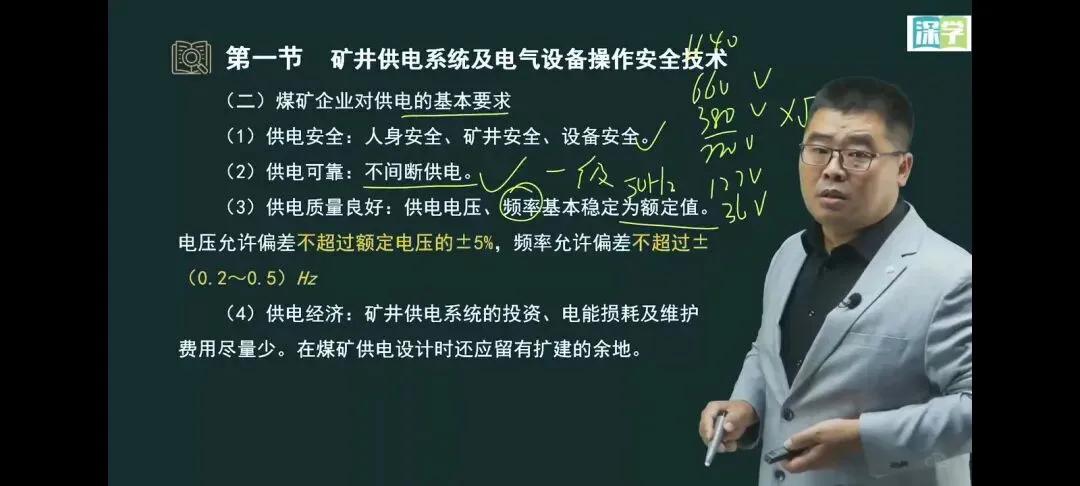 深学
第一节 矿井供电系统及电气设备操作安全技术
1140
660 V
（二）煤矿企业对供电的基本要求
380 V
（1）供电安全：人身安全、矿井安全、设备安全。
220V
（2）供电可靠：不间断供电。
一级
50Hz
127V
（3）供电质量良好：供电电压、频率基本稳定为额定值。
36V
电压允许偏差不超过额定电压的±5%，频率允许偏差不超过±
（0.2～0.5）Hz
（4）供电经济：矿井供电系统的投资、电能损耗及维护
费用尽量少。在煤矿供电设计时还应留有扩建的余地。